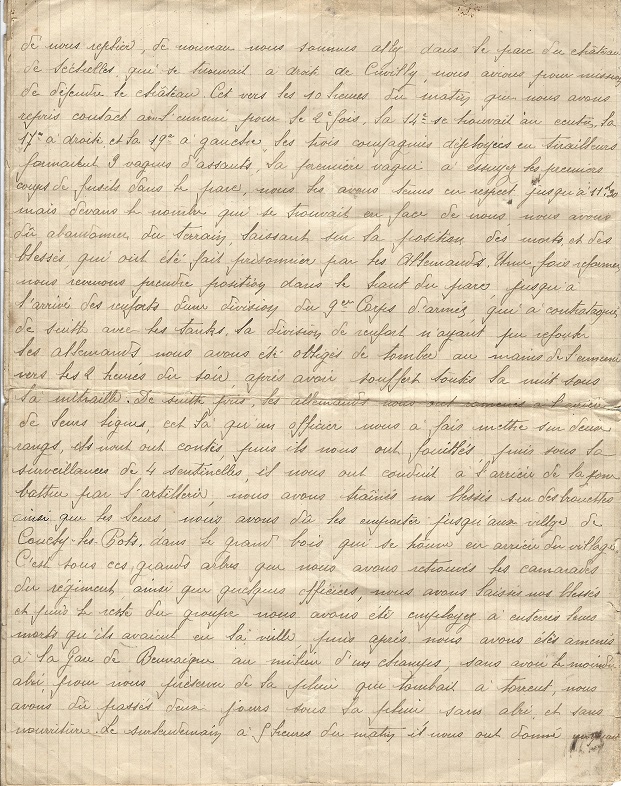 de nous replier, de nouveau nous sommes ally dans le parc du château
de Séchelles, qui se trouvait a droit de Cuvilly, nous avions pour mission
de défendre le château. Cet vers les 10 heures du matin que nous avons
repris contact avec l'ennemi pour la 2e fois, la 14e se trouvait au centre, la
17e à droite et la 19e a gauche. Les trois compagnies déployées en tirailleurs
formaient 3 vagues d'assauts, la première vague a essuyé les premiers
coups de fusils dans le parc, nous les avons tenus en respect jusqu'à 11h 20
mais devant le nombre qui se trouvait en face de nous nous avons
dû abandonner du terrain, laissant sur la position des morts et des
blessés qui ont été fait prisonnier par les Allemands. Une fois reformés
nous revenons prendre position dans le haut du parc jusqu'à
l'arrivé des renforts d'une division du 9er Corps d'armée qui a contrataqué
de suitte avec les tanks. La division de renfort n'ayant pu refouler
les allemands nous avons été obligés de tomber au mains de l'ennemi
vers les 9 heures du soir après avoir souffert toutes la nuit sous
la mitraille. De suitte pris, les allemands nous ont amenés a l'arrière
de leurs lignes, cet là qu'un officier nous a fais mettre sur deux
rangs, ils nout ont contés, puis ils nous ont fouillés, puis sous la
surveillances de 4 sentinelles, il nous ont conduit a l'arrière de la zone
battue par l'artillerie nous avons trainés nos blessés sur des brouettes
ainsi que les leurs nous avons dû les emporter jusqu'aux village de
Conchy-les-Pots, dans le grand bois qui se trouve en arrière du village.
C'est sous ces grands arbres que nous avons retrouvés les camarades
du régiment, ainsi que quelques officiers, nous avons laissés nos blessés
et puis le reste du groupe nous avons été employez à enterrés leurs
morts qu'ils avaient eu la veille puis après nous avons étés amenés
a la Gare de au milieu d'un champs, sans avoir le moindre
abri pour nous préserver de la pluie qui tombait à torrent, nous
avons dû passés deux jours sous la pluie sans abri et sans
nourriture. Le surlendemain a 5 heures du matin il nous ont donné